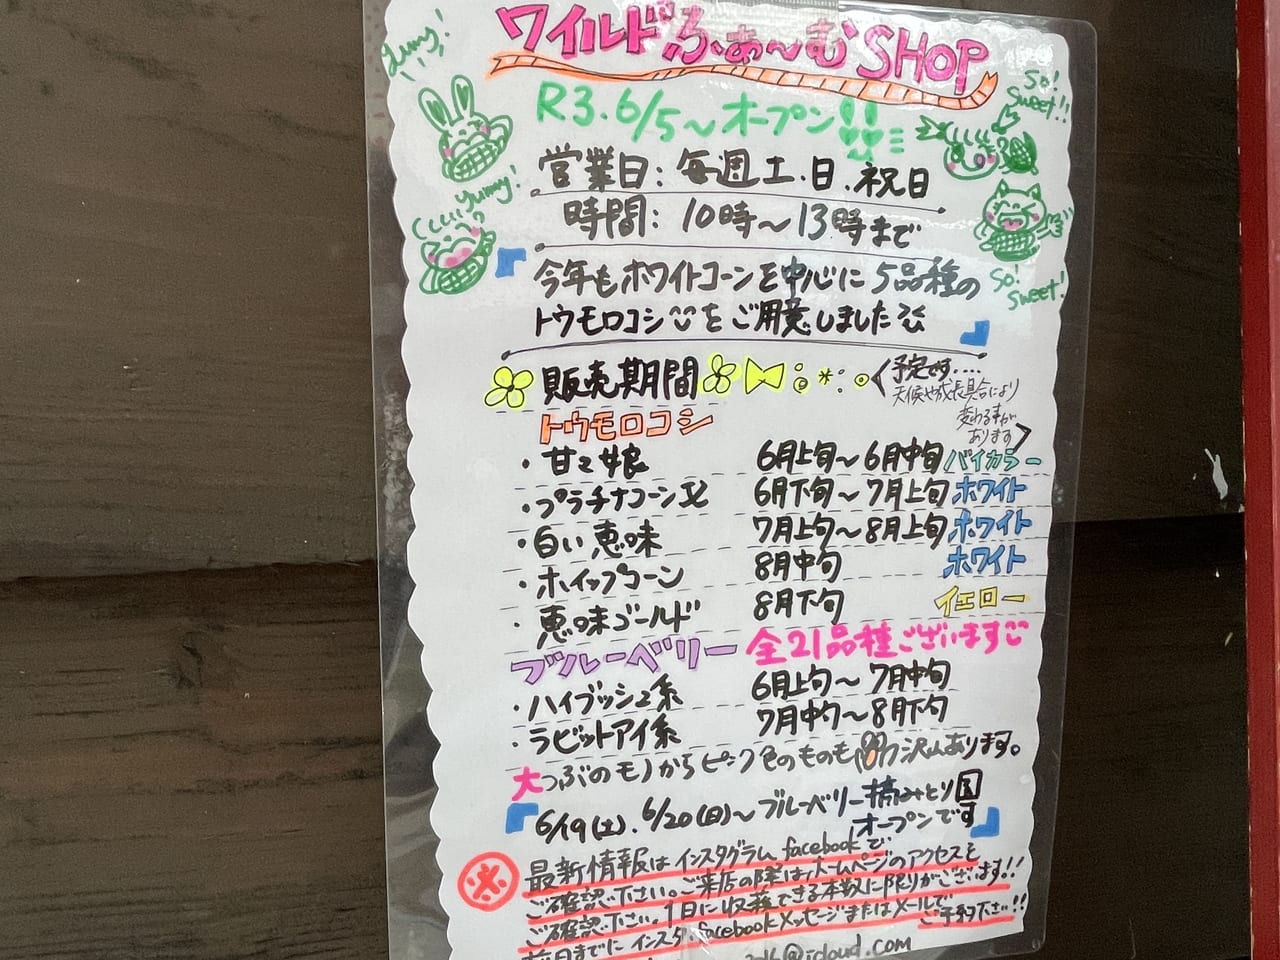 ワイルドふぁ〜む SHOP
yummy!
R3.6/5〜オープン!!
So! sweet!!
営業日: 毎週土.日.祝日
yummy!
時間: 10時〜13時まで
So! sweet!
今年もホワイトコーンを中心に5品種の
トウモロコシをご用意しました
販売期間
<予定です....
天候や成長具合により
変わる事が
あります>
トウモロコシ
・甘々娘 6月上旬〜6月中旬 バイカラー
・プラチナコーンEX 6月下旬〜7月上旬 ホワイト
・白い恵味 7月上旬〜8月上旬 ホワイト
・ホイップコーン 8月中旬 ホワイト
・恵味ゴールド 8月下旬 イエロー
ブルーベリー 全21品種ございます
・ハイブッシュ系 6月上旬〜7月中旬
・ラビットアイ系 7月中旬〜8月下旬
大つぶのモノからピンク色のものも沢山あります。
6/19(土).6/20(日)〜ブルーベリー摘みとり園
オープンです
※最新情報はインスタグラム facebookで
ご確認下さい。ご来店の際はホームページのアクセスを
ご確認下さい。1日に収穫できる本数に限りがございます!!
前日までにインスタ.facebookメッセージまたはメールで
ご予約下さい!!
@icloud.com